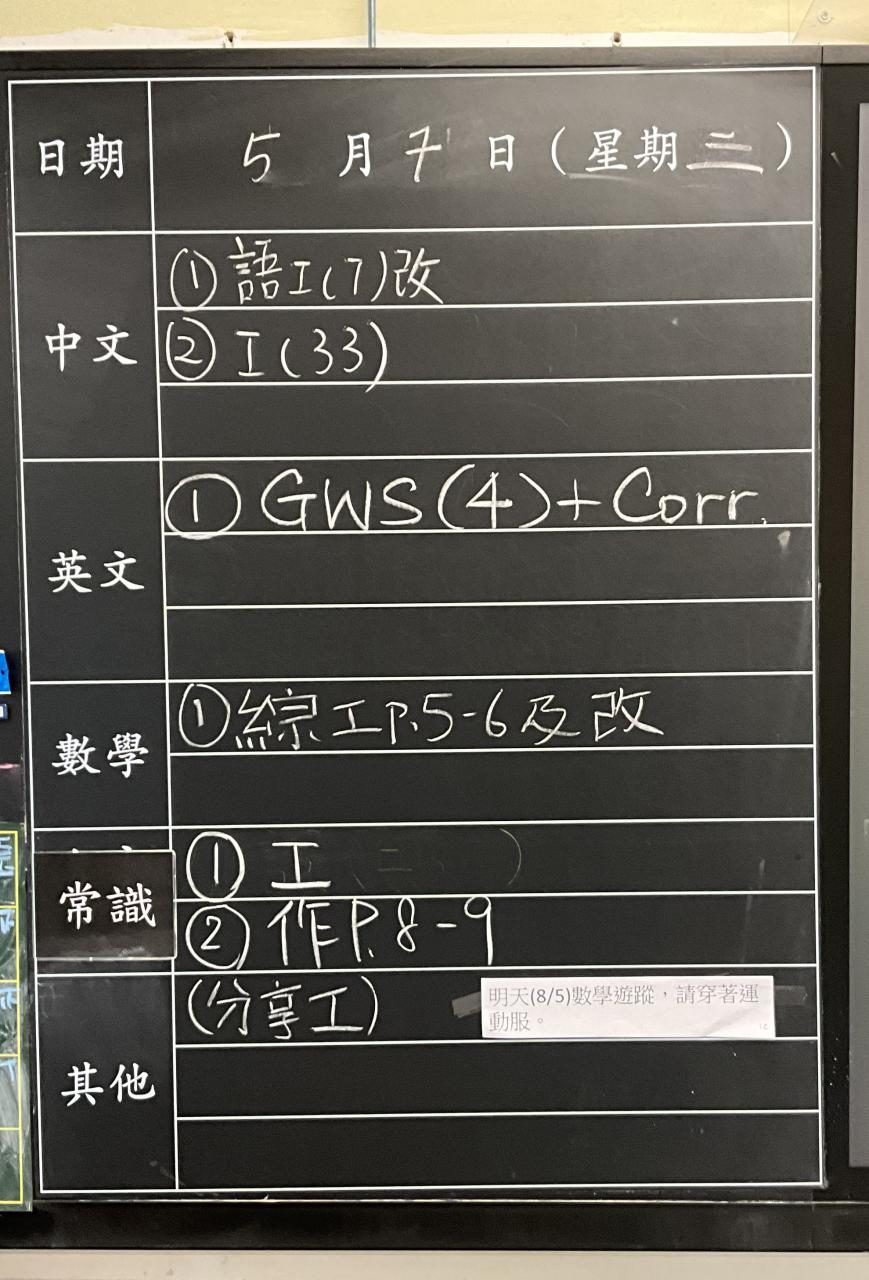 日期 5月7日(星期三)
中文
①語工(7)改
②工(33)
英文
①GWS(4)+Corr.
數學
①綜工P.5-6及改
常識
①工
②作P.8-9
其他
(分享工)
明天(8/5)數學遊蹤，請穿著運
動服。
1C